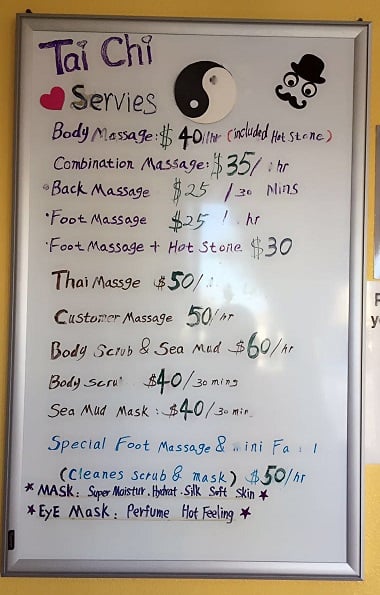 Tai Chi
Servies
Body Massage: $40/hr (included Hot Stone)
Combination Massage: $35/ hr
Back Massage $25 /30 Mins
Foot Massage $25 / hr
Foot Massage + Hot Stone $30
Thai Massge $50/
Customer Massage 50/hr
Body Scrub & Sea Mud $60/hr
Body Scru $40/30 mins
Sea Mud Mask: $40/30 min
Special Foot Massage &
(Cleanes scrub & mask) $50/hr
* MASK: Super Moistur. Hydrat. Silk Soft Skin ★
* EyE Mask: Perfume Hot Feeling ★